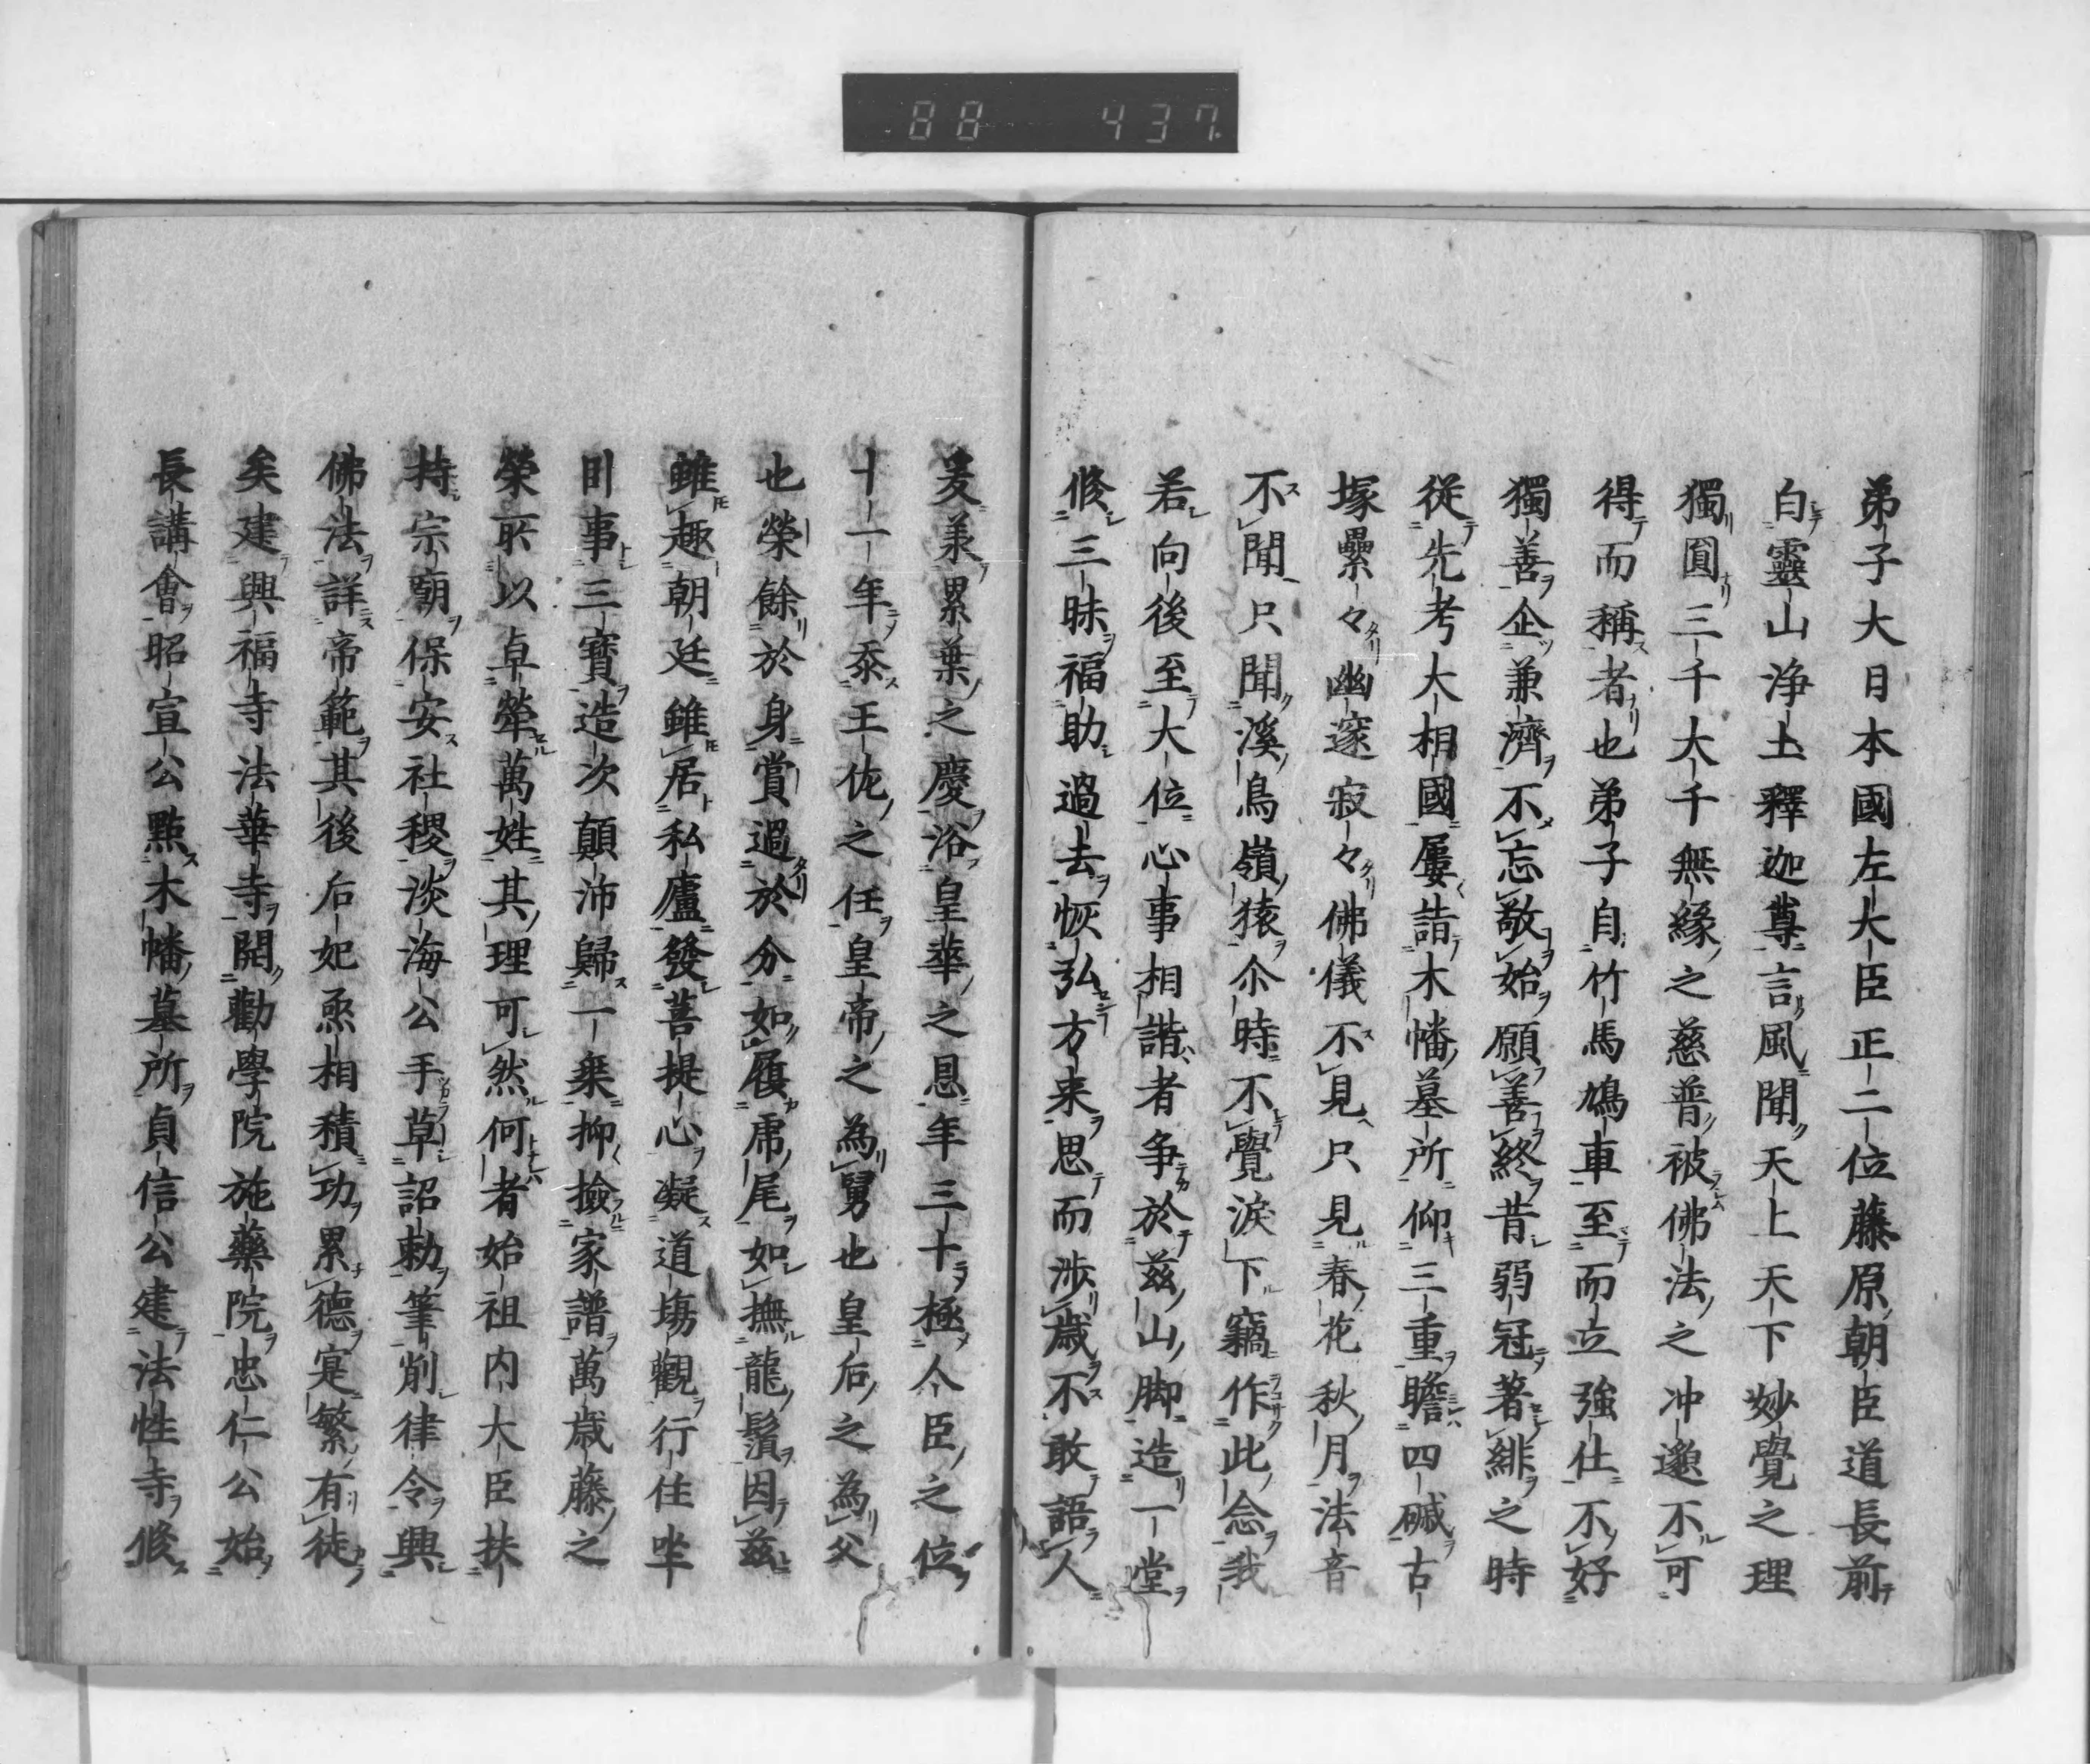 88 437
弟子大日本國左大臣正二位藤原朝臣道長前
白靈山浄土釋迦尊言風聞天上天下妙覺之理
獨圓三千大千無緣之慈普被佛法之冲邈不可
得而稱者也弟子自竹馬鳩車至而立強仕不好
獨善企兼濟不忘敬始願善終昔弱冠著緋之時
從先考大相國屢詣木幡墓所仰三重瞻四碱古
塚纍々幽邃寂々佛儀不見只見春花秋月法音
不聞只聞溪鳥嶺猿尒時不覺淚下竊作此念我
若向後至大位心事相諧者争於茲山脚造一堂
修三昧福助過去恢弘方来思而渉歳不敢語人
爰羕累葉之慶浴皇華之恩年三十極人臣之位
十一年忝王佐之任皇帝之為舅也皇后之為父
也榮餘於身賞過於分如履虎尾如撫龍鬚因茲
雖趣朝廷雖居私廬發菩提心凝道場觀行住坐
臥事三寶造次顛沛歸一乗抑撿家譜萬歳藤之
榮所以卓犖萬姓其理可然何者始祖内大臣扶
持宗廟保安社稷淡海公手草詔勅筆削律令興
佛法詳帝範其後后妃丞相積功累德寔繁有徒
矣建興福寺法華寺開勸學院施藥院忠仁公始
長講會昭宣公點木幡墓所貞信公建法性寺修